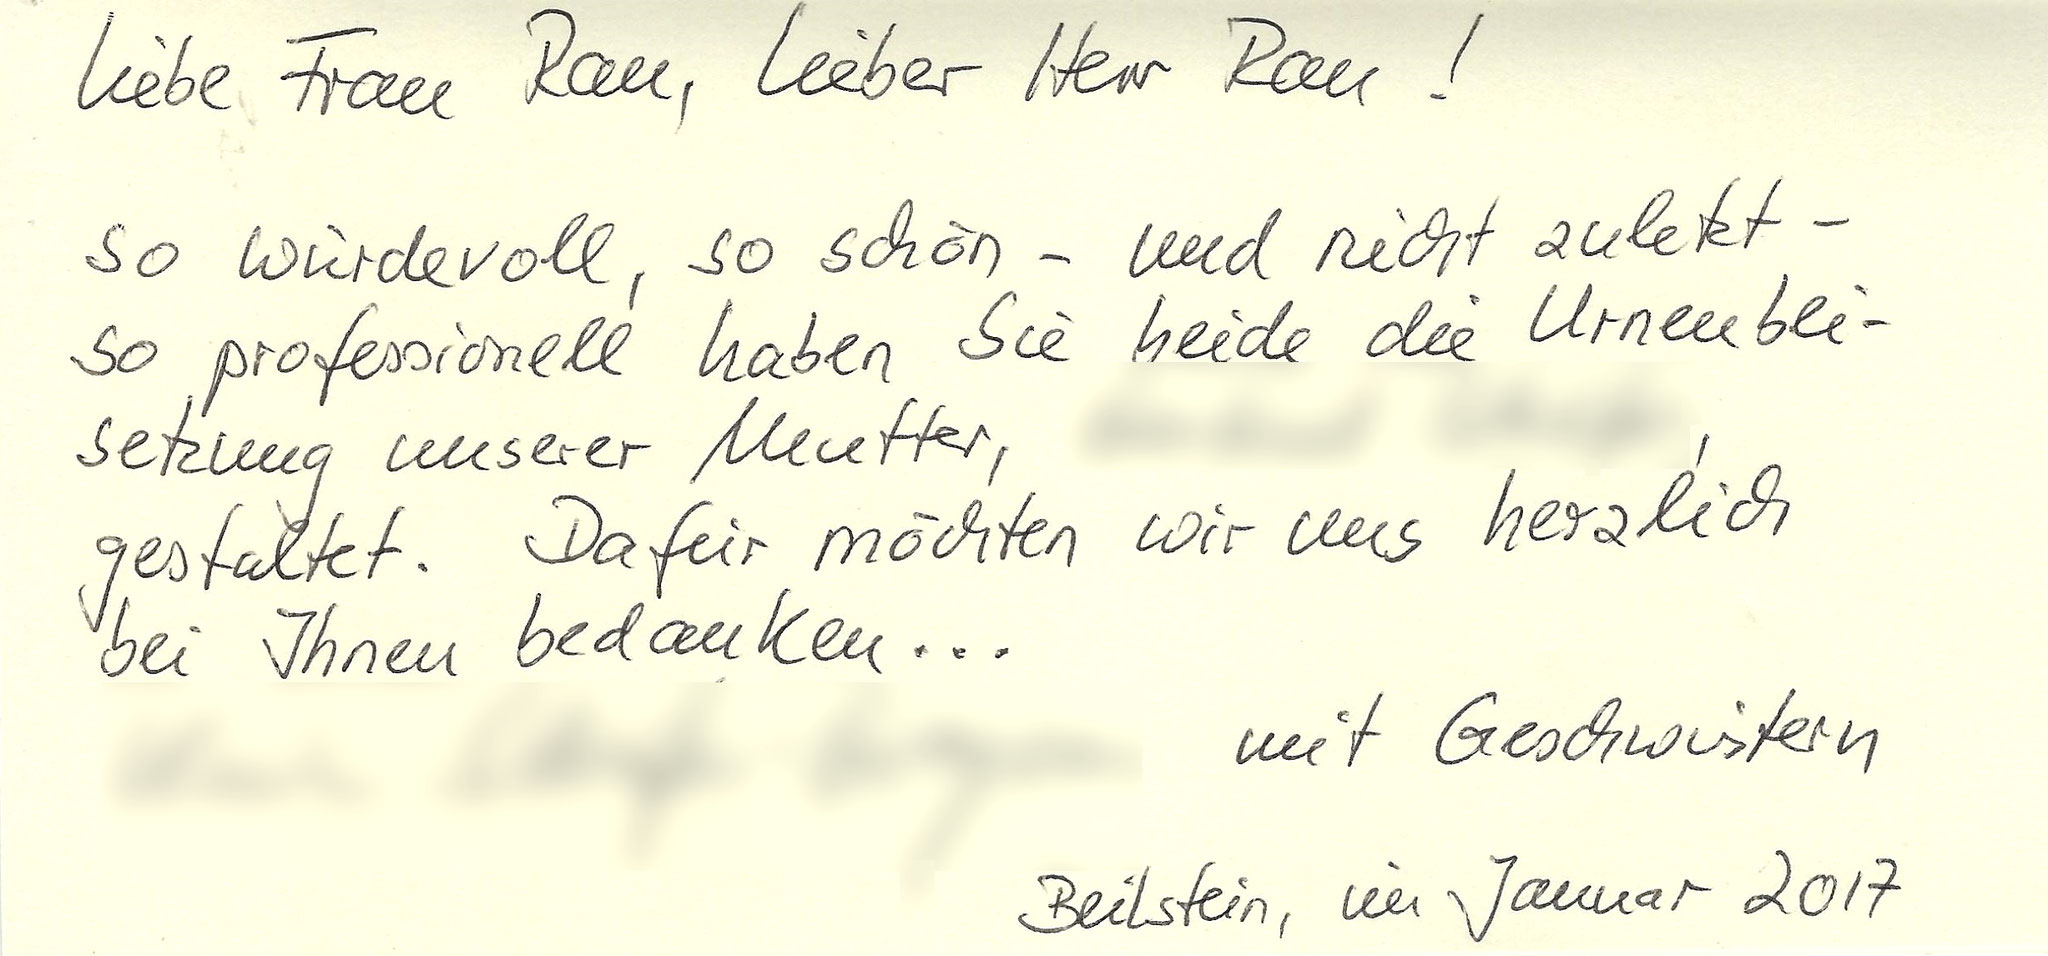 Liebe Frau Rau, lieber Herr Rau!
so würdevoll, so schön - und nicht zuletzt -
so professionell haben Sie beide die Urnenbei-
setzung unserer Mutter, ,
gestaltet. Dafür möchten wir uns herzlich
bei Ihnen bedanken...
mit Geschwistern
Beilstein, im Januar 2017